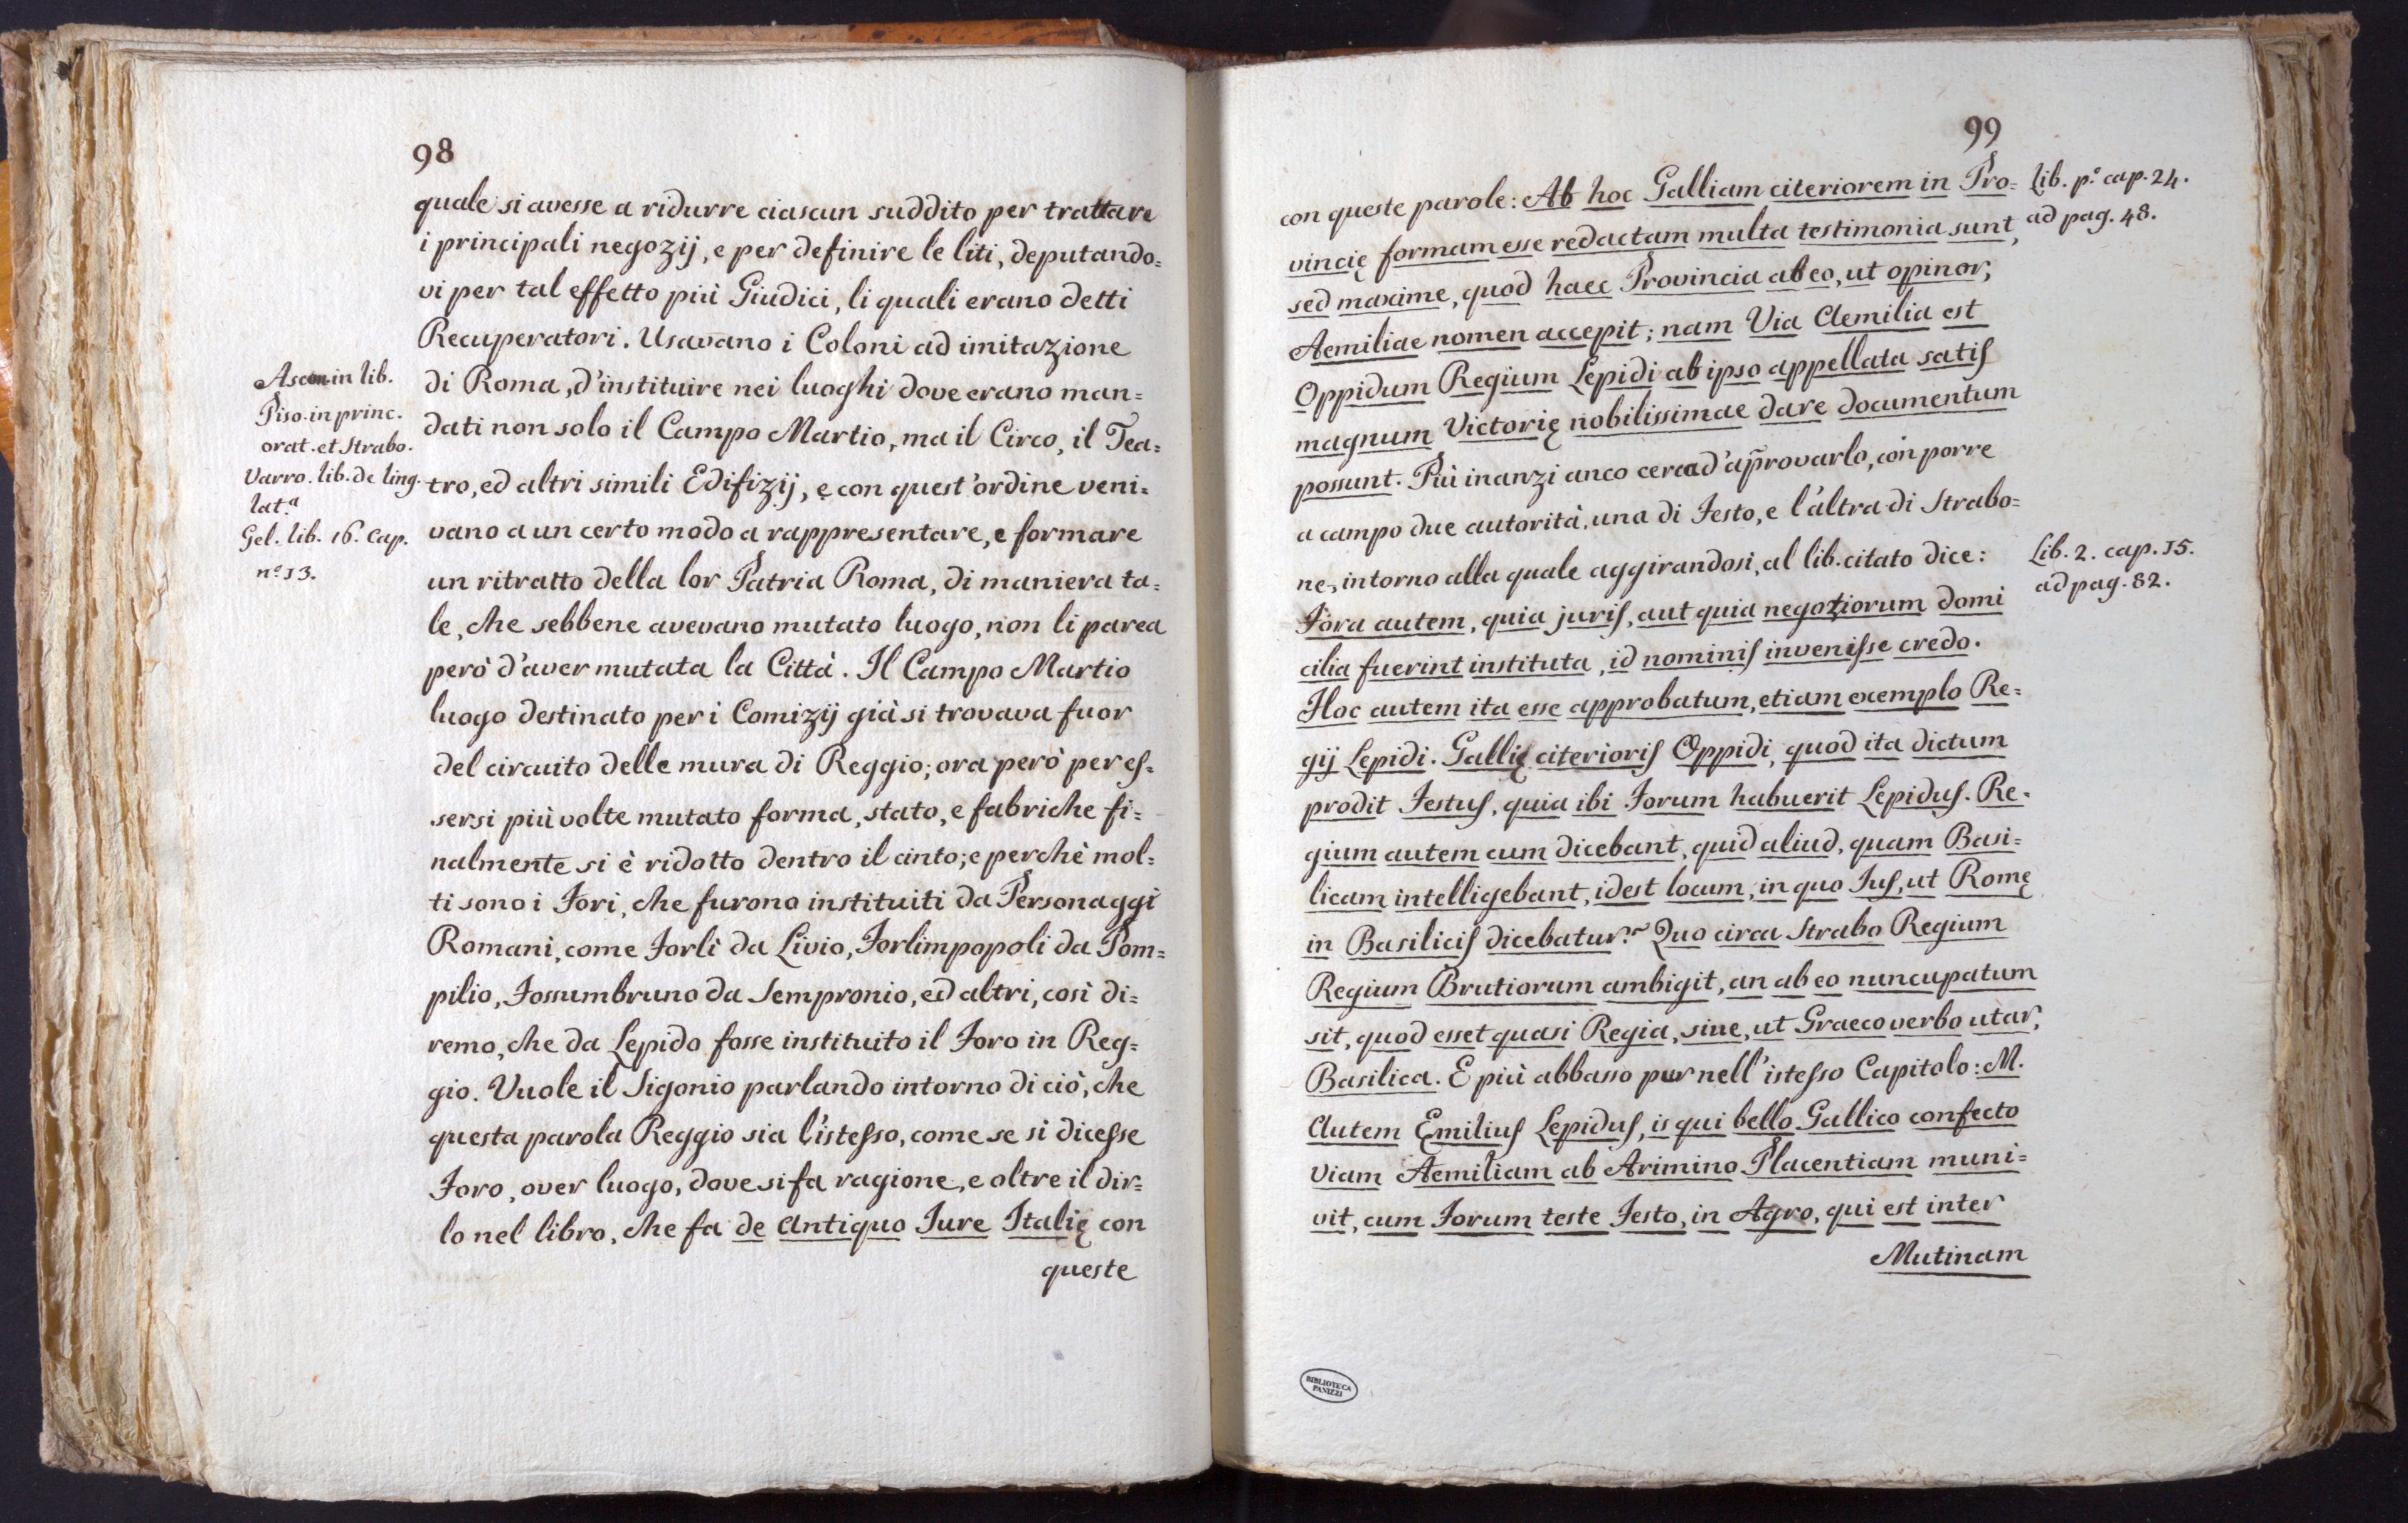 98
quale si avesse a ridurre ciascun suddito per trattare
i principali negozij, e per definire le liti, deputando=
vi per tal effetto più Giudici, li quali erano detti
Recuperatori. Usavano i Coloni ad imitazione
di Roma, d'instituire nei luoghi dove erano man=
dati non solo il Campo Martio, ma il Circo, il Tea=
tro, ed altri simili Edifizij, e con quest'ordine veni=
vano a un certo modo a rappresentare, e formare
un ritratto della lor Patria Roma, di maniera ta=
le, che sebbene avevano mutato luogo, non li parea
però d'aver mutata la Città. Il Campo Martio
luogo destinato per i Comizij già si trovava fuor
del circuito delle mura di Reggio; ora però per es=
sersi più volte mutato forma, stato, e fabriche fi=
nalmente si è ridotto dentro il cinto; e perchè mol=
ti sono i Fori, che furono instituiti da Personaggi
Romani, come Forlì da Livio, Forlimpopoli da Pom=
pilio, Fossumbruno da Sempronio, ed altri, così di=
remo, che da Lepido fosse instituito il Foro in Reg=
gio. Vuole il Sigonio parlando intorno di ciò, che
questa parola Reggio sia l'istesso, come se si dicesse
Foro, over luogo, dove si fa ragione, e oltre il dir=
lo nel libro, che fa de Antiquo Jure Italię con
queste
Ascon. in lib.
Piso. in princ.
orat. et Strabo.
Varro. lib. de ling.
lat.a
Gel. lib. 16. Cap.
n.o 13.
99
con queste parole: Ab hoc Galliam citeriorem in Pro=
vincię formam esse redactam multa testimonia sunt,
sed maxime, quod haec Provincia ab eo, ut opinor,
Aemiliae nomen accepit; nam Via Aemilia est
Oppidum Regium Lepidi ab ipso appellata satis
magnum Victorię nobilissimae dare documentum
possunt. Più inanzi anco cerca d'aprovarlo, con porre
a campo due autorità, una di Festo, e l'altra di Strabo=
ne, intorno alla quale aggirandosi, al lib. citato dice:
Fora autem, quia juris, aut quia negotiorum domi
cilia fuerint instituta, id nominis invenisse credo.
Hoc autem ita esse approbatum, etiam exemplo Re=
gij Lepidi. Gallię citerioris Oppidi, quod ita dictum
prodit Festus, quia ibi Forum habuerit Lepidus. Re=
gium autem cum dicebant, quid aliud, quam Basi=
licam intelligebant, idest locum, in quo Jus, ut Romę
in Basilicis dicebatur? Quo circa Strabo Regium
Regium Brutiorum ambigit, an ab eo nuncupatum
sit, quod esset quasi Regia, sive, ut Graeco verbo utar,
Basilica. E più abbasso pur nell'istesso Capitolo: M.
Autem Emilius Lepidus, is qui bello Gallico confecto
viam Aemiliam ab Arimino Placentiam muni=
vit, cum Forum teste Festo, in Agro, qui est inter
Mutinam
Lib. p.o cap. 24.
ad pag. 48.
Lib. 2. cap. 15.
ad pag. 82.
BIBLIOTECA
PANIZZI